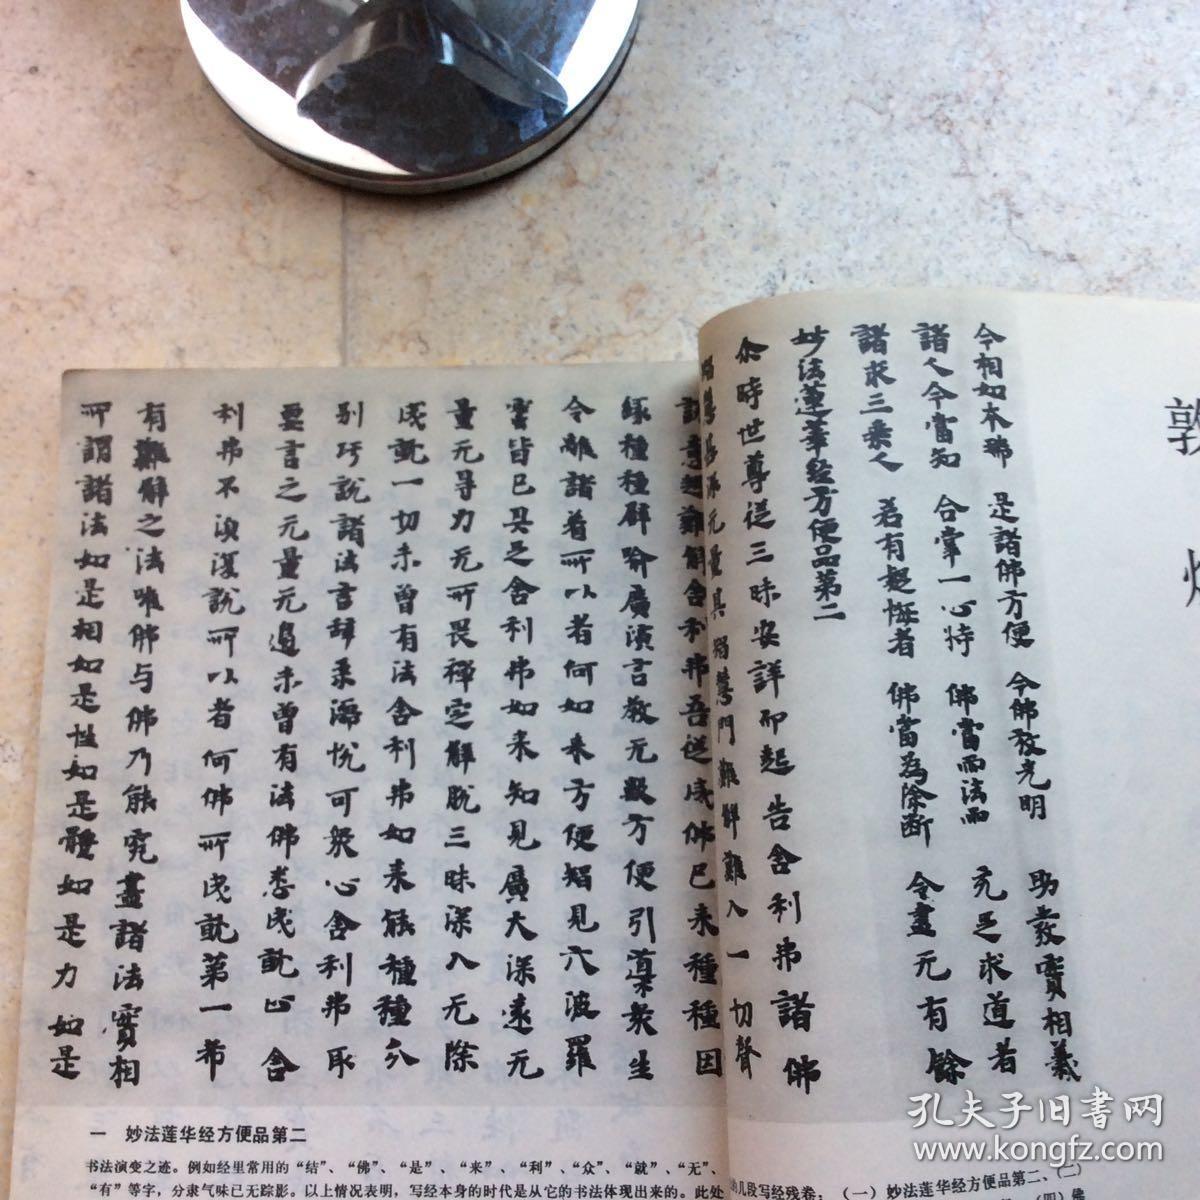 敦
今相如本瑞 是諸佛方便 今佛放光明 助發實相義
諸人今當知 合掌一心待 佛當雨法雨 充足求道者
諸求三乘人 若有疑悔者 佛當為除断 令盡无有餘
妙法蓮華经方便品第二
尒時世尊従三昧安詳而起告舍利弗諸佛
智慧甚深无量其智慧門難解難入一切聲
説意趣難解舍利弗吾従成佛已来種種因
緣種種辟喻廣演言教无數方便引導衆生
令離諸着所以者何如来方便知見六波羅
蜜皆已具足舍利弗如来知見廣大深遠元
量元导力无所畏禪定解脱三昧深入无除
成就一切未曾有法舍利弗如来能種種分
别巧説諸法言辞柔濡悦可衆心舍利弗取
要言之无量无邊未曾有法佛悉成就止舍
利弗不湏復説所以者何佛所成就第一希
有難解之法唯佛与佛乃能究盡諸法實相
所謂諸法如是相如是性如是體如是力如是
一 妙法莲华经方便品第二
书法演变之迹。例如经里常用的“结”、“佛”、“是”、“来”、“利”、“众”、“就”、“无”、
“有”等字，分隶气味已无踪影。以上情况表明，写经本身的时代是从它的书法体现出来的。此处
的几段写经残卷：（一）妙法莲华经方便品第二、（二）
孔夫子旧書网
www.kongfz.com